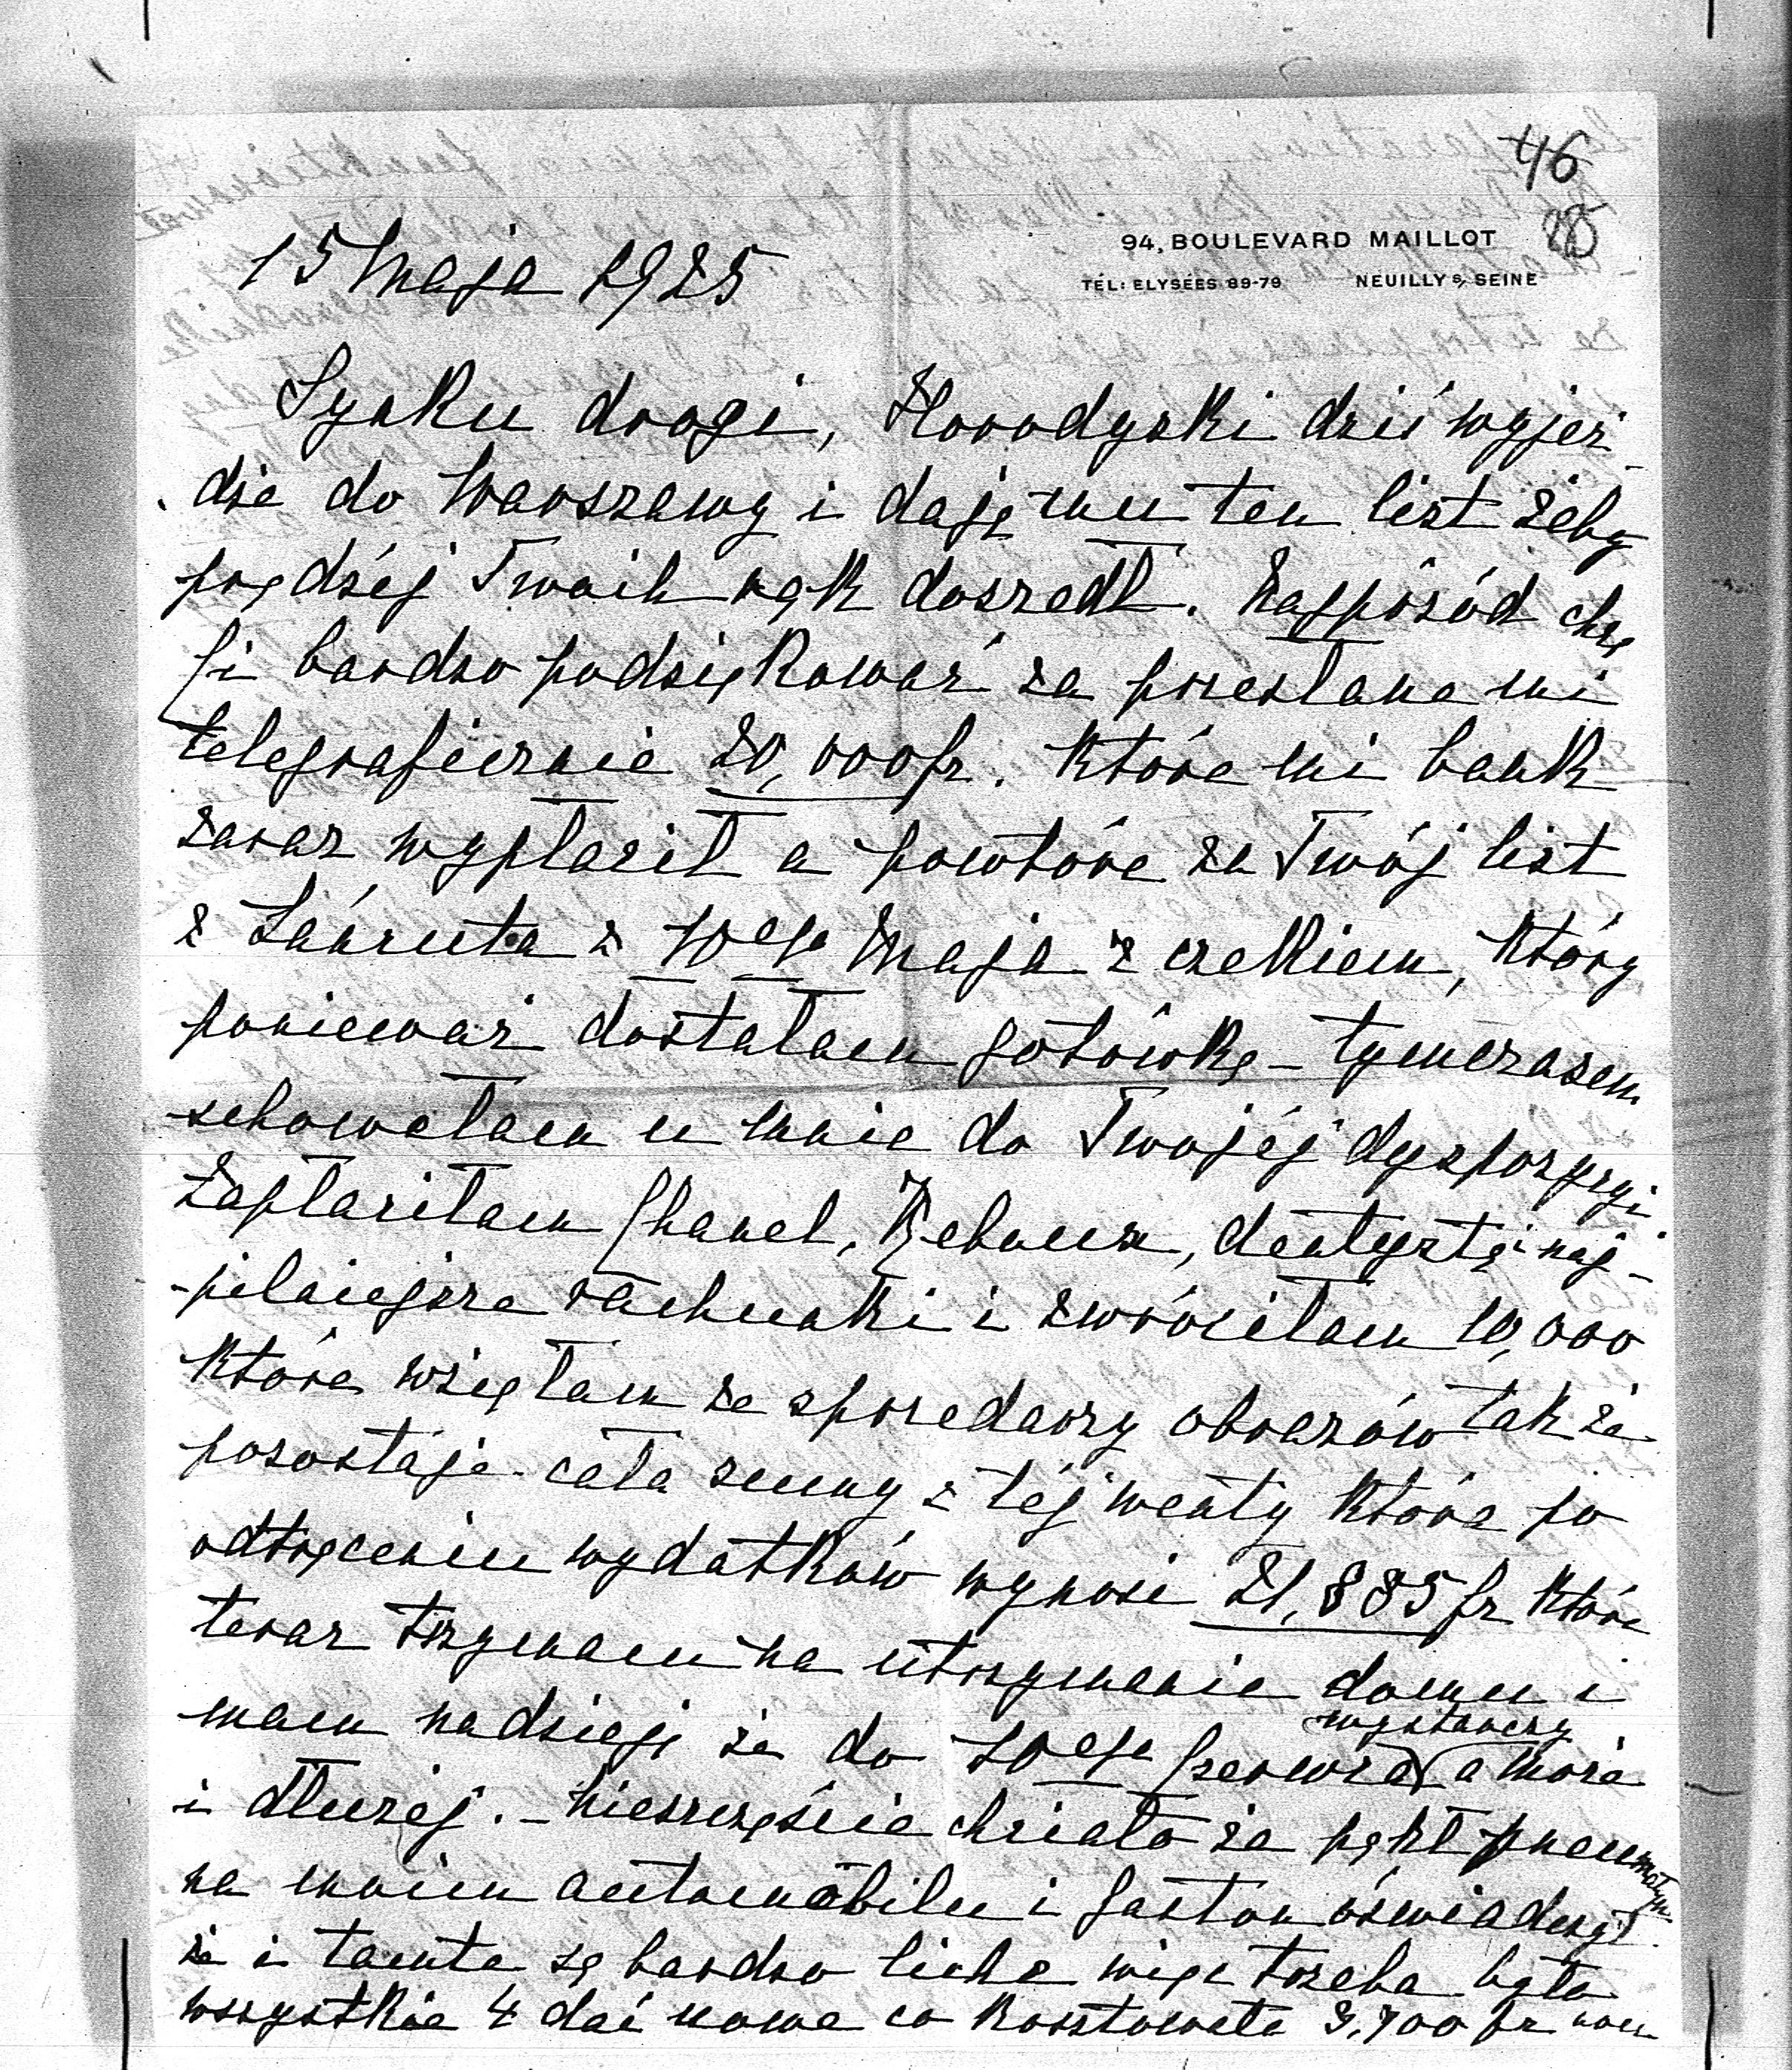 46
28
94, BOULEVARD MAILLOT
TÉL: ELYSÉES 89-79 NEUILLY S/ SEINE
15 Maja 1925
Synku drogi, Horodyski dziś wyjeż-
dża do Warszawy i daję mu ten list żeby
prędzéj Twoich rąk doszedł. Najprzód chcę
Ci bardzo podziękować za przesłane mi
telegraficznie 20,000 fr. które mi bank
zaraz wypłacił a powtóre za Twój list
z Łańcuta z 10go Maja z czekiem, który
ponieważ dostałam gotówkę – tymczasem
schowałam u mnie do Twojéj dyspozycyi.
Zapłaciłam Chanel, dentystę i naj-
pilniejsze rachunki i zwróciłam 10,000
które wzięłam ze sprzedaży obrazów tak że
pozostaje cała sumy z téj wenty które po
odtrąceniu wydatków wynosi 21,885 fr które
teraz trzymam na utrzymanie domu i
mam nadzieję że do 10go Czerwca wystarczy a może
i dłużéj. – Nieszczęście chciało że pękł pneumatyk
na moim automobilu i Gaston oświadczył
że i tamte są bardzo liche więc trzeba było
wszystkie 4 dać nowe co kosztowało 3,700 fr